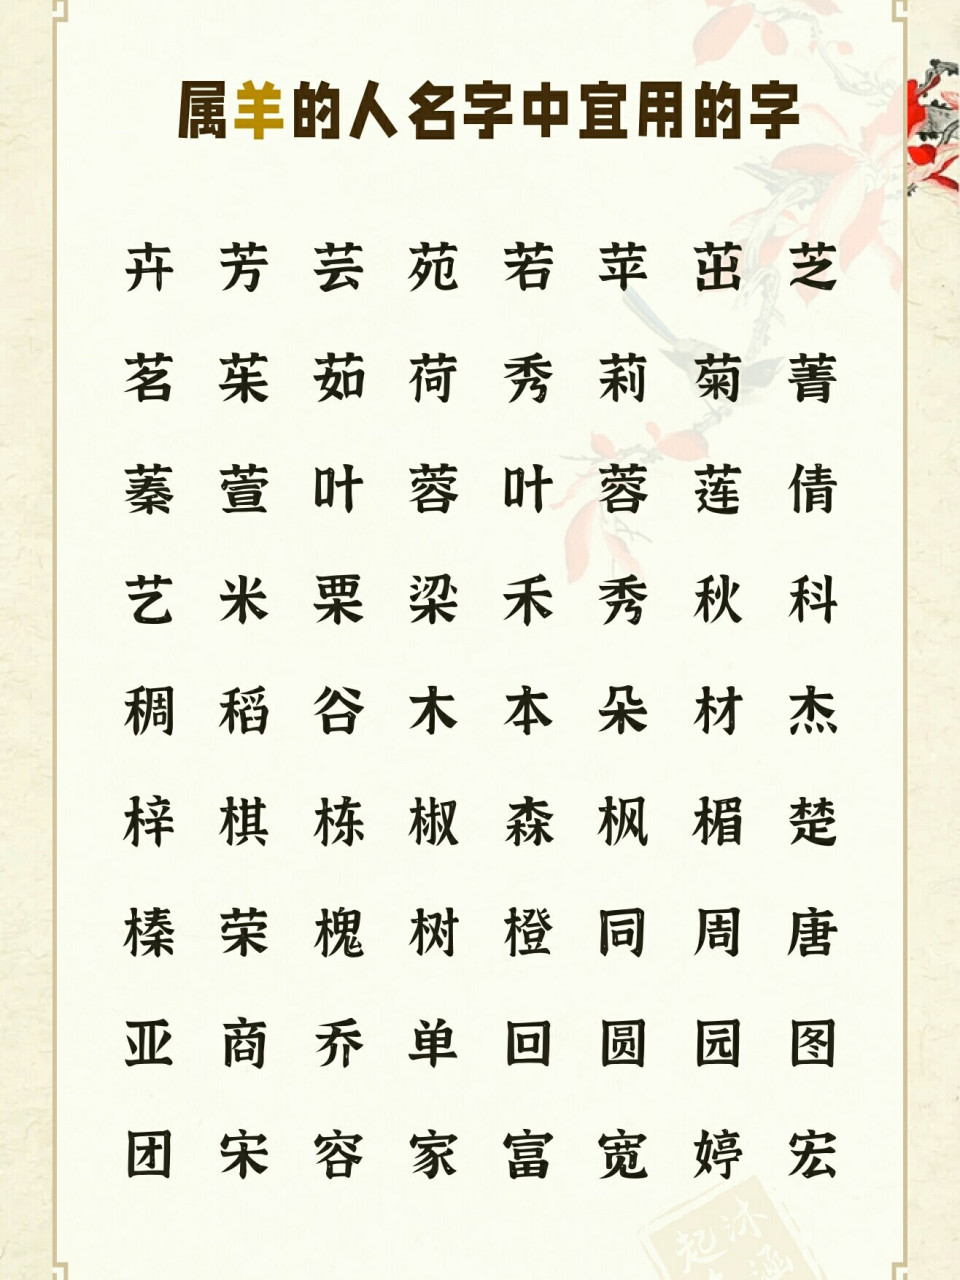 属羊的人名字中宜用的字
卉 芳 芸 苑 若 苹 茁 芝
茗 茱 茹 荷 秀 莉 菊 菁
蓁 萱 叶 蓉 叶 蓉 莲 倩
艺 米 栗 梁 禾 秀 秋 科
稠 稻 谷 木 本 朵 材 杰
梓 棋 栋 椒 森 枫 楣 楚
榛 荣 槐 树 橙 同 周 唐
亚 商 乔 单 回 圆 园 图
团 宋 容 家 富 宽 婷 宏
沐涵
起